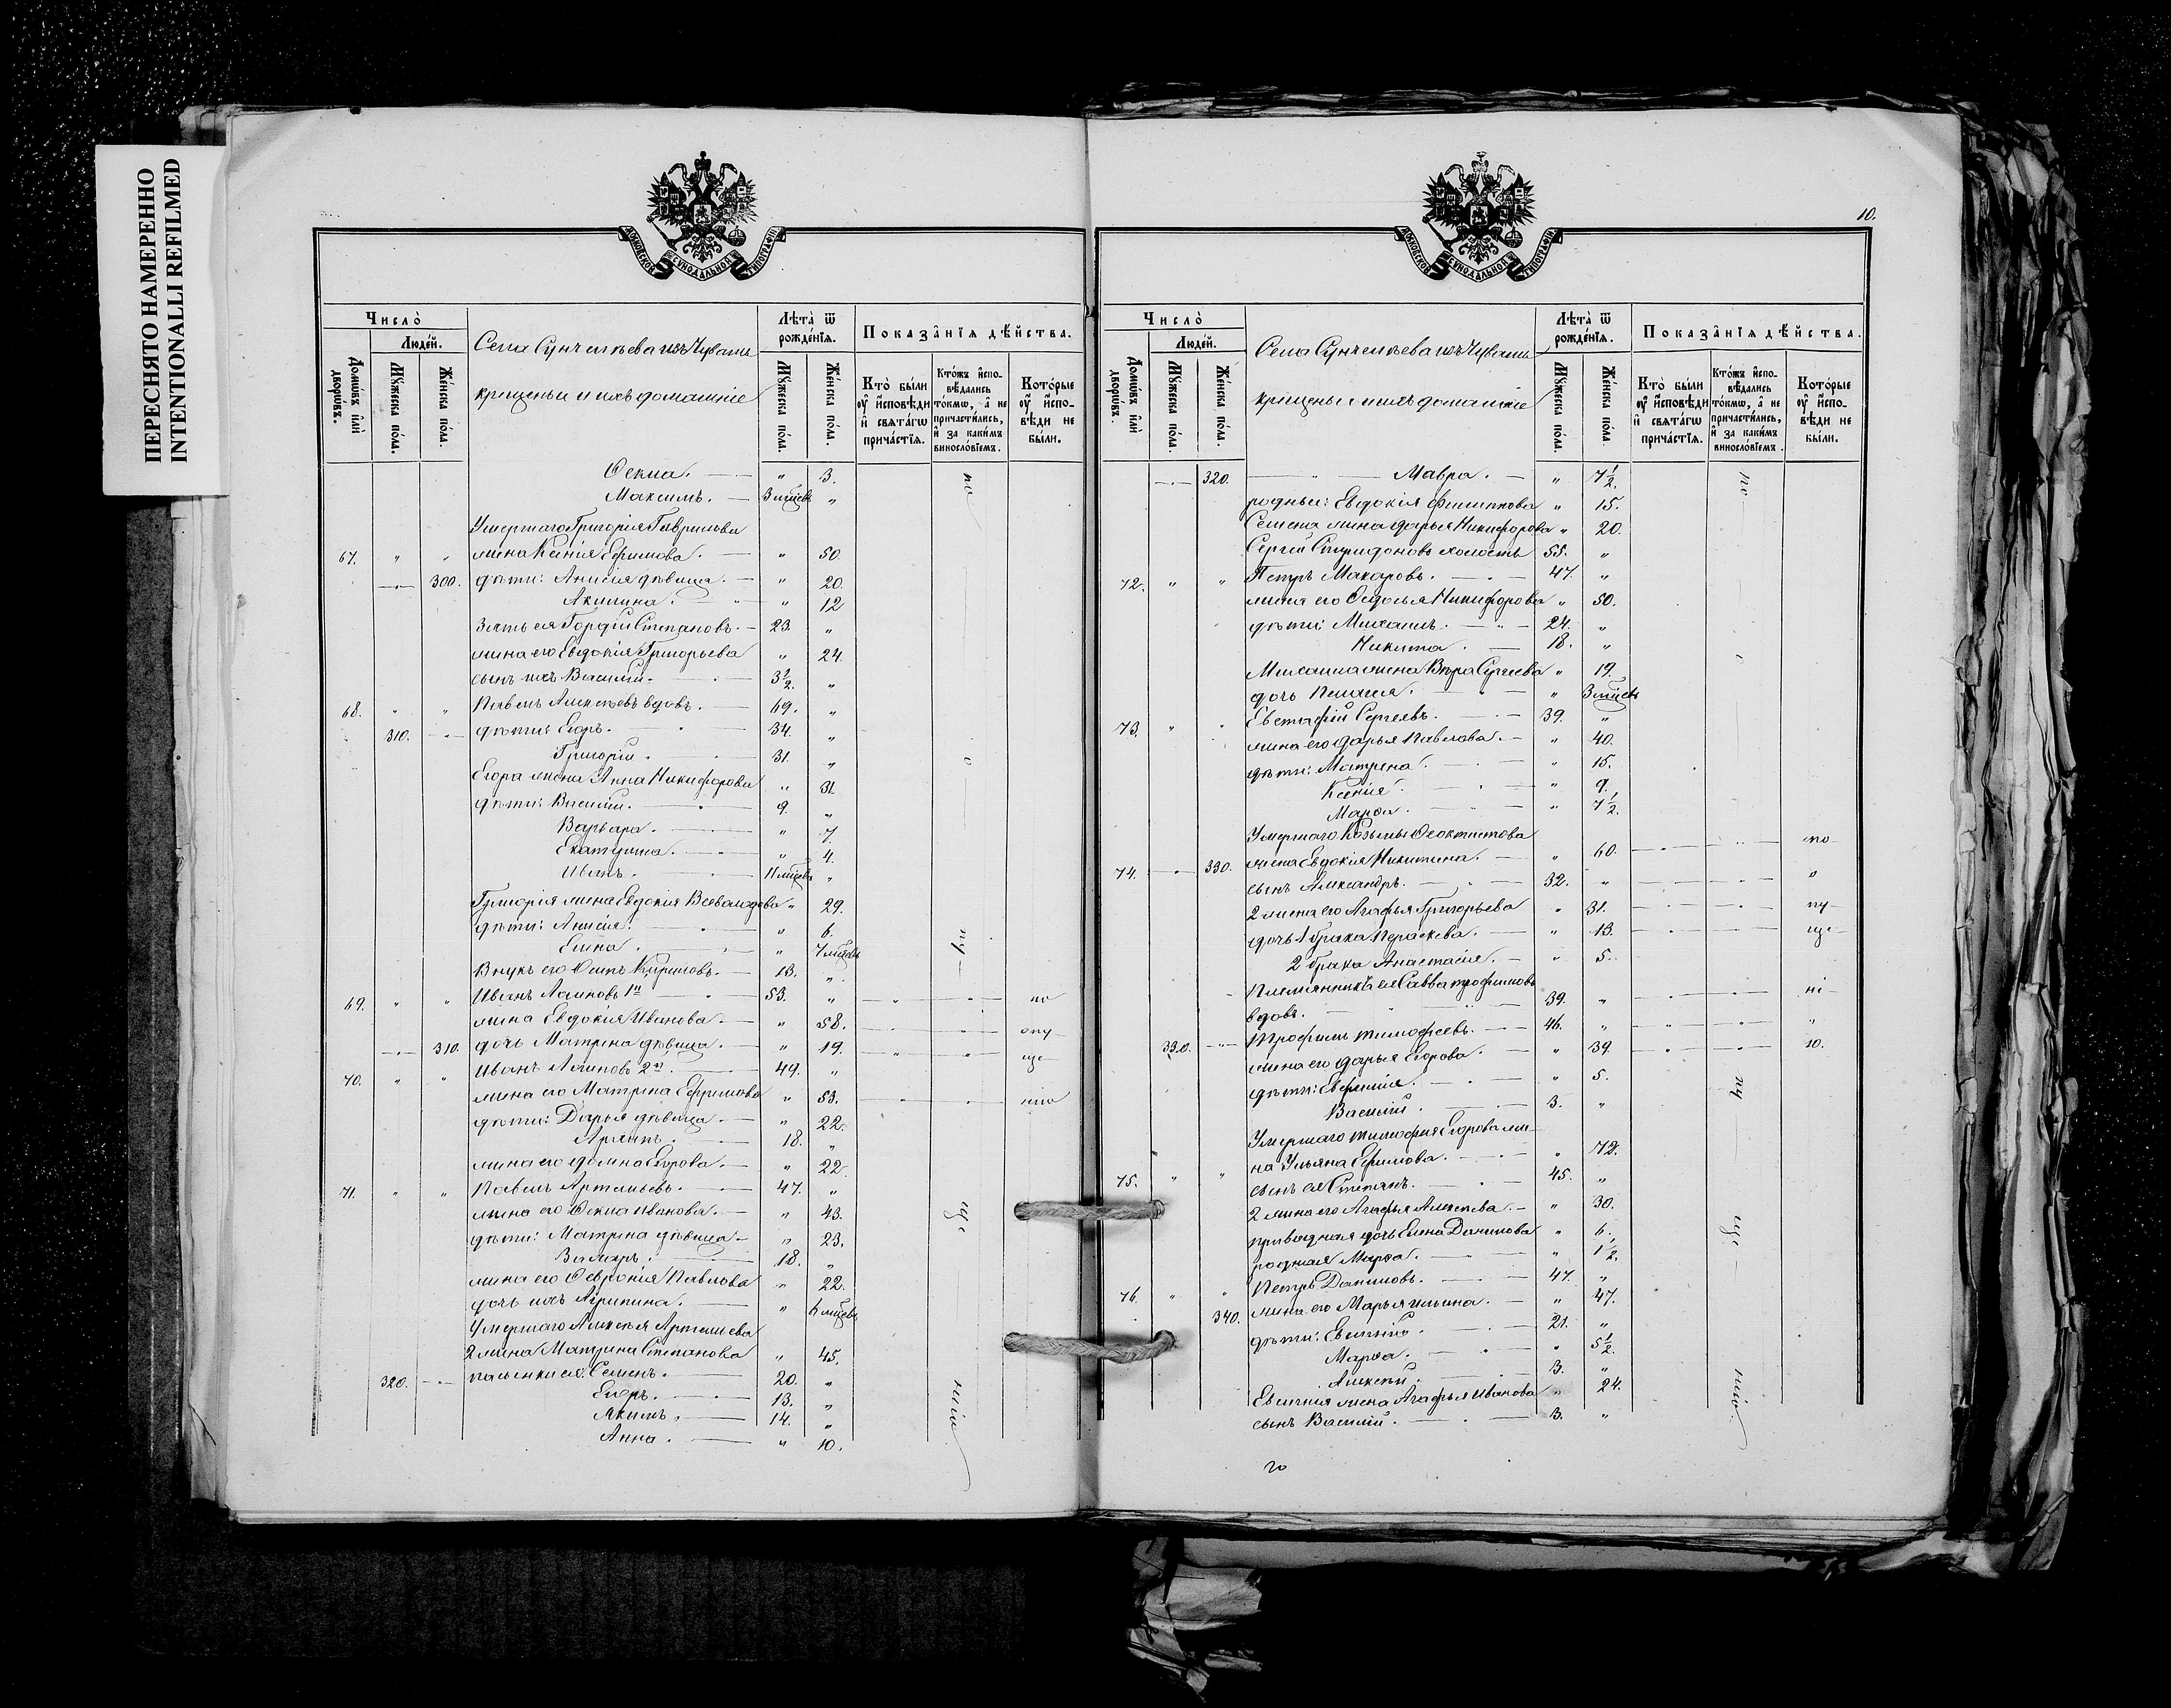 ПЕРЕСНЯТО НАМЕРЕННО
INTENTIONALLI REFILMED
МОСКОВСКОЙ СѴНОДАЛЬНОЙ ТИПОГРАФІИ
Число̀
Людéй.
Домѡ́въ и҆лѝ дворѡ́въ.
Мꙋ́жеска по́ла.
Же́нска по́ла.
Села Сунчелѣева изъ Чувашъ
крещеные и ихъ домашніе
Лѣта̀ ѿ рожде́нїѧ.
Мꙋ́жеска по́ла.
Же́нска по́ла.
Показа̂нїѧ дѣ́йства.
Кто̀ бы́ли ᲂу҆ и҆сповѣ́ди и҆ свѧта́гѡ прича́стїѧ.
Кто́жъ и҆сповѣ́дались то́кмѡ, а҆ не причасти́лись, и҆ за каки́мъ винослѡ́вїемъ.
Кото́рые ᲂу҆ и҆сповѣ́ди не бы́ли.
Ѳекла. — " 3.
Максимъ. — 3 мѣсяц "
Умершаго Григорія Гаврилова
67. " " жена Ксенія Ефимова. — " 50
300. дѣти: Анисія дѣвица. — " 20.
Акилина. " 12
Зять ея Гордій Степановъ. — 23. "
жена его Евдокія Григорьева " 24.
сынъ ихъ Василій. 3½. "
68. " " Павелъ Алексѣевъ вдовъ. — 69. "
310. дѣти: Егоръ. 34. "
Григорій. 31. "
Егора жена Анна Никифорова " 31
дѣти: Василій. 9. "
Варвара. " 7.
Екатерина. " 4.
Иванъ. 11 мѣсяц "
Григорія жена Евдокія Всеволодова " 29.
дѣти: Анисія. " 6.
Елена. " 7 мѣсяц
Внукъ его Осипъ Кириловъ. — 13. "
69. " " Иванъ 1й 53. " по
жена Евдокія Иванова. — " 58.
310. дочь Матрена дѣвица. — " 19. ще
70. " " Иванъ 2й 49. "
жена его Матрена Ефремова " 53.
дѣти: Дарья дѣвица. — " 22.
18. "
жена его Домна Егорова. — " 22.
71. " " Павелъ Артемьевъ. 47. "
жена его Ѳекла Иванова. — " 43.
дѣти: Матрена дѣвица — " 23.
18. "
жена его Ѳевронія Павлова " 22.
дочь ихъ Агрипина. " 6 мѣсяц
Умершаго Алексѣя Артемьева
2 жена Матрена Степанова " 45.
320. пасынки ея: Семенъ. 20. "
Егоръ. 13. "
Якимъ. 14. "
Анна. " 10.
по
пу
ще
10.
МОСКОВСКОЙ СѴНОДАЛЬНОЙ ТИПОГРАФІИ
Число̀
Людéй.
Домѡ́въ и҆лѝ дворѡ́въ.
Мꙋ́жеска по́ла.
Же́нска по́ла.
Села Сунчелѣева изъ Чувашъ
крещеные и ихъ домашніе
Лѣта̀ ѿ рожде́нїѧ.
Мꙋ́жеска по́ла.
Же́нска по́ла.
Показа̂нїѧ дѣ́йства.
Кто̀ бы́ли ᲂу҆ и҆сповѣ́ди и҆ свѧта́гѡ прича́стїѧ.
Кто́жъ и҆сповѣ́дались то́кмѡ, а҆ не причасти́лись, и҆ за каки́мъ винослѡ́вїемъ.
Кото́рые ᲂу҆ и҆сповѣ́ди не бы́ли.
320. Мавра. — " 7½.
родные: Евдокія Филиппова " 15.
Семена жена Дарья Никифорова " 20.
Сергей Спиридоновъ холостъ 55. "
72. " " Петръ Макаровъ. 47. "
жена его Ѳедосья Никифорова " 50.
дѣти: Михаилъ. 24. "
Никита. 18. "
Михаила жена Вѣра Сергеева " 19.
дочь Пелагея. " 3 мѣсяц
73. " " Евстафій Сергеевъ. 39. "
жена его Дарья Павлова. — " 40.
дѣти: Матрена. " 15.
Ксенія. " 9.
Марѳа. " 7½.
Умершаго Козьмы Ѳеоктистова
74. 330. жена Евдокія Никитина. — " 60.
сынъ Александръ. 32. "
2 жена его Агафья Григорьева " 31. пу
дочь 1 брака Параскева. — " 13. ще
2 брака Анастасія. — " 5.
Племянникъ ея Савва Трофимовъ
вдовъ. 39. " ні
330. Трофимъ Тимофеевъ. — 46. "
жена его Дарья Егорова. — " 39. ю.
дѣти: Евфимія. " 5.
Василій. 3. "
Умершаго Тимофея Егорова же-
75. " " на Ульяна Ефимова. " 72.
сынъ ея Степанъ. 45. "
2 жена его Агафья Алексѣева. — " 30.
приводная дочь Елена Данилова " 6.
родная Марѳа. " 1½.
76. " " Петръ Даниловъ. 47. "
340. жена его Марья Ильина. — " 47.
дѣти: Евгеній. 21. "
Марѳа. " 5½.
Алексѣй. 3. "
Евгенія жена Агафья Иванова " 24.
сынъ Василій. 3. "
по
пу
ще
нію.